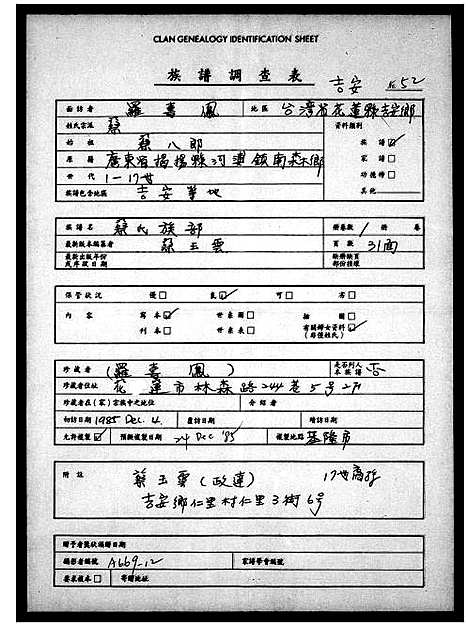 CLAN GENEALOGY IDENTIFICATION SHEET
族譜調查表 吉安 52
面訪者 羅喜鳳 地區 台灣省花蓮縣吉安鄉
姓氏宗派 蔡 資料類別
始祖 蔡八郎 族譜☑
原籍 廣東省揭揚縣河溥鎮南森鄉 家譜□
世代 1-17世 功德榜□
族譜包含地區 吉安等地 其他
族譜名 蔡氏族部 冊卷數 1 冊 卷
最新版本編纂者 蔡玉雲 頁數 31面
最新出版年份或序跋日期 缺冊缺頁部份待祿
保管狀況 優□ 良☑ 可□ 劣□
內容 寫本☑ 世系圖□ 插圖□
刊本□ 世系表□ 有關婦女資料☑(局僅姓氏)
珍藏者 (羅喜鳳) 是否列入本族譜 否
珍藏者住址 花蓮市林森路244巷5号2户
珍藏者在(家)宗族中之地位 介紹者
初訪日期 1985 Dec. 4. 重訪日期 續訪日期
允許複製☑ 預擬複製日期 24 Dec '85 複製地點 基隆市
附註 蔡玉雲(政連) 17世裔孫
吉安鄉仁里村仁里3街6号
贈予者獎狀頒贈日期
攝影者編號 A669-12 家譜學會編號
要求複本□ 寄贈地址